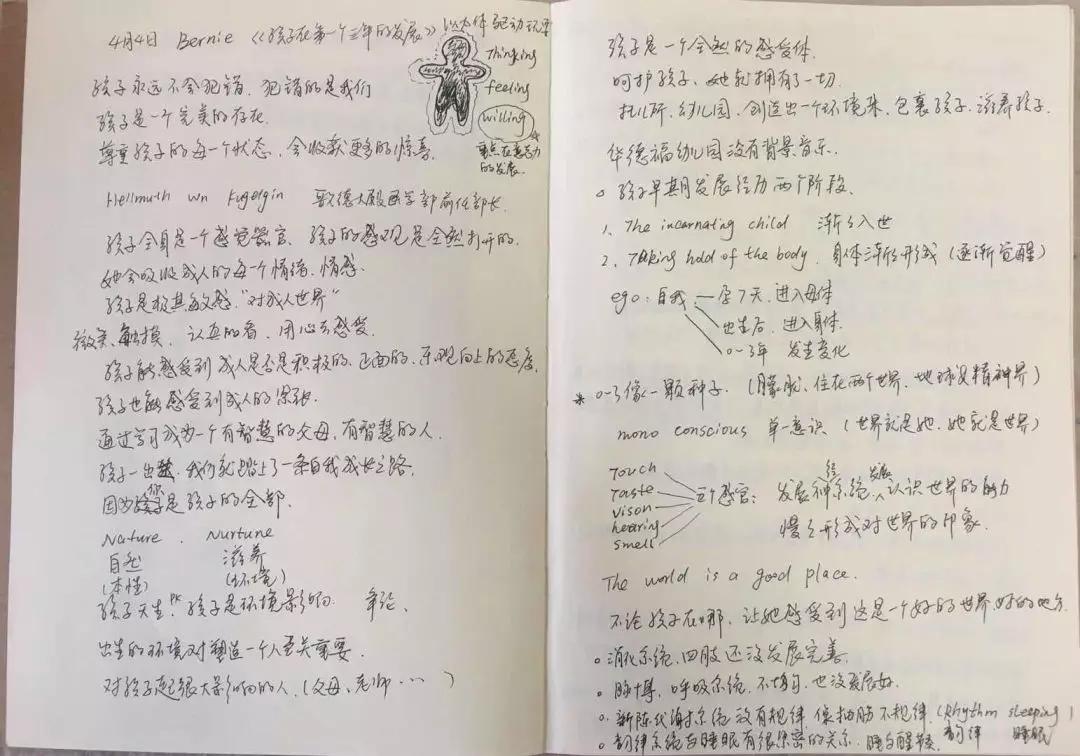 4月4日 Bernie 《孩子在第一个三年的发展》
以大体驱动玩耍
Thinking
feeling
willing
重点在意志力
的发展.
孩子永远不会犯错. 犯错的是我们
孩子是一个完美的存在.
尊重孩子的每一个状态, 会收获更多的惊喜.
Hellmuth 歌德大殿医学部前任部长.
孩子全身是一个感觉器官. 孩子的感观是全然打开的.
她会吸收成人的每个情绪、情感.
孩子是极其敏感. "对成人世界"
微笑、触摸. 认真的看. 用心去感受.
孩子能感受到成人是否是积极的、正面的、乐观向上的态度.
孩子也能感受到成人的紧张.
通过学习成为一个有智慧的父母, 有智慧的人.
孩子一出生, 我们就踏上了一条自我成长之路.
因为你是孩子的全部.
Nature . Nurtune
自然 滋养
(本性) (环境)
孩子天生. PK 孩子是环境影响. 争论.
出生的环境对塑造一个人至关重要.
对孩子起很大影响的人. (父母、老师…… )
孩子是一个全然的感受体.
呵护孩子、她就拥有了一切.
托儿所、幼儿园. 创造出一个环境来, 包裹孩子、滋养孩子.
华德福幼儿园没有背景音乐.
。孩子早期发展经历两个阶段.
1、The incarnating child 渐渐入世
2、Taking hold of the body. 身体渐渐形成 (逐渐觉醒)
ego: 自我 — 孕7天. 进入母体
出生后. 进入身体.
0~3年 发生变化
* 0~3像一颗种子. (朦胧、住在两个世界. 地球及精神界)
mono conscious 单一意识 (世界就是她. 她就是世界)
Touch
Taste
Vison
hearing
Smell
五个感官: 发展神经系统. 发展认识世界的能力
慢慢形成对世界的印象.
The world is a good place.
不论孩子在哪. 让她感受到这是一个好的世界. 好的地方.
。消化系统、四肢还没发展完善.
。脉搏、呼吸系统. 不均匀. 也没发展好.
。新陈代谢系统没有规律 像抽筋不规律. (Rhythm sleeping)
韵律 睡眠
。韵律系统与睡眠有很紧密的关系. 睡与醒